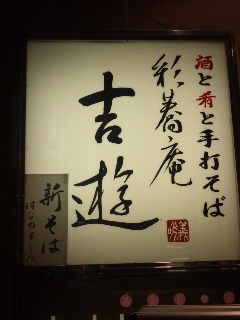 酒と肴と手打そば
彩蕎庵
吉遊
新そば
はじめました